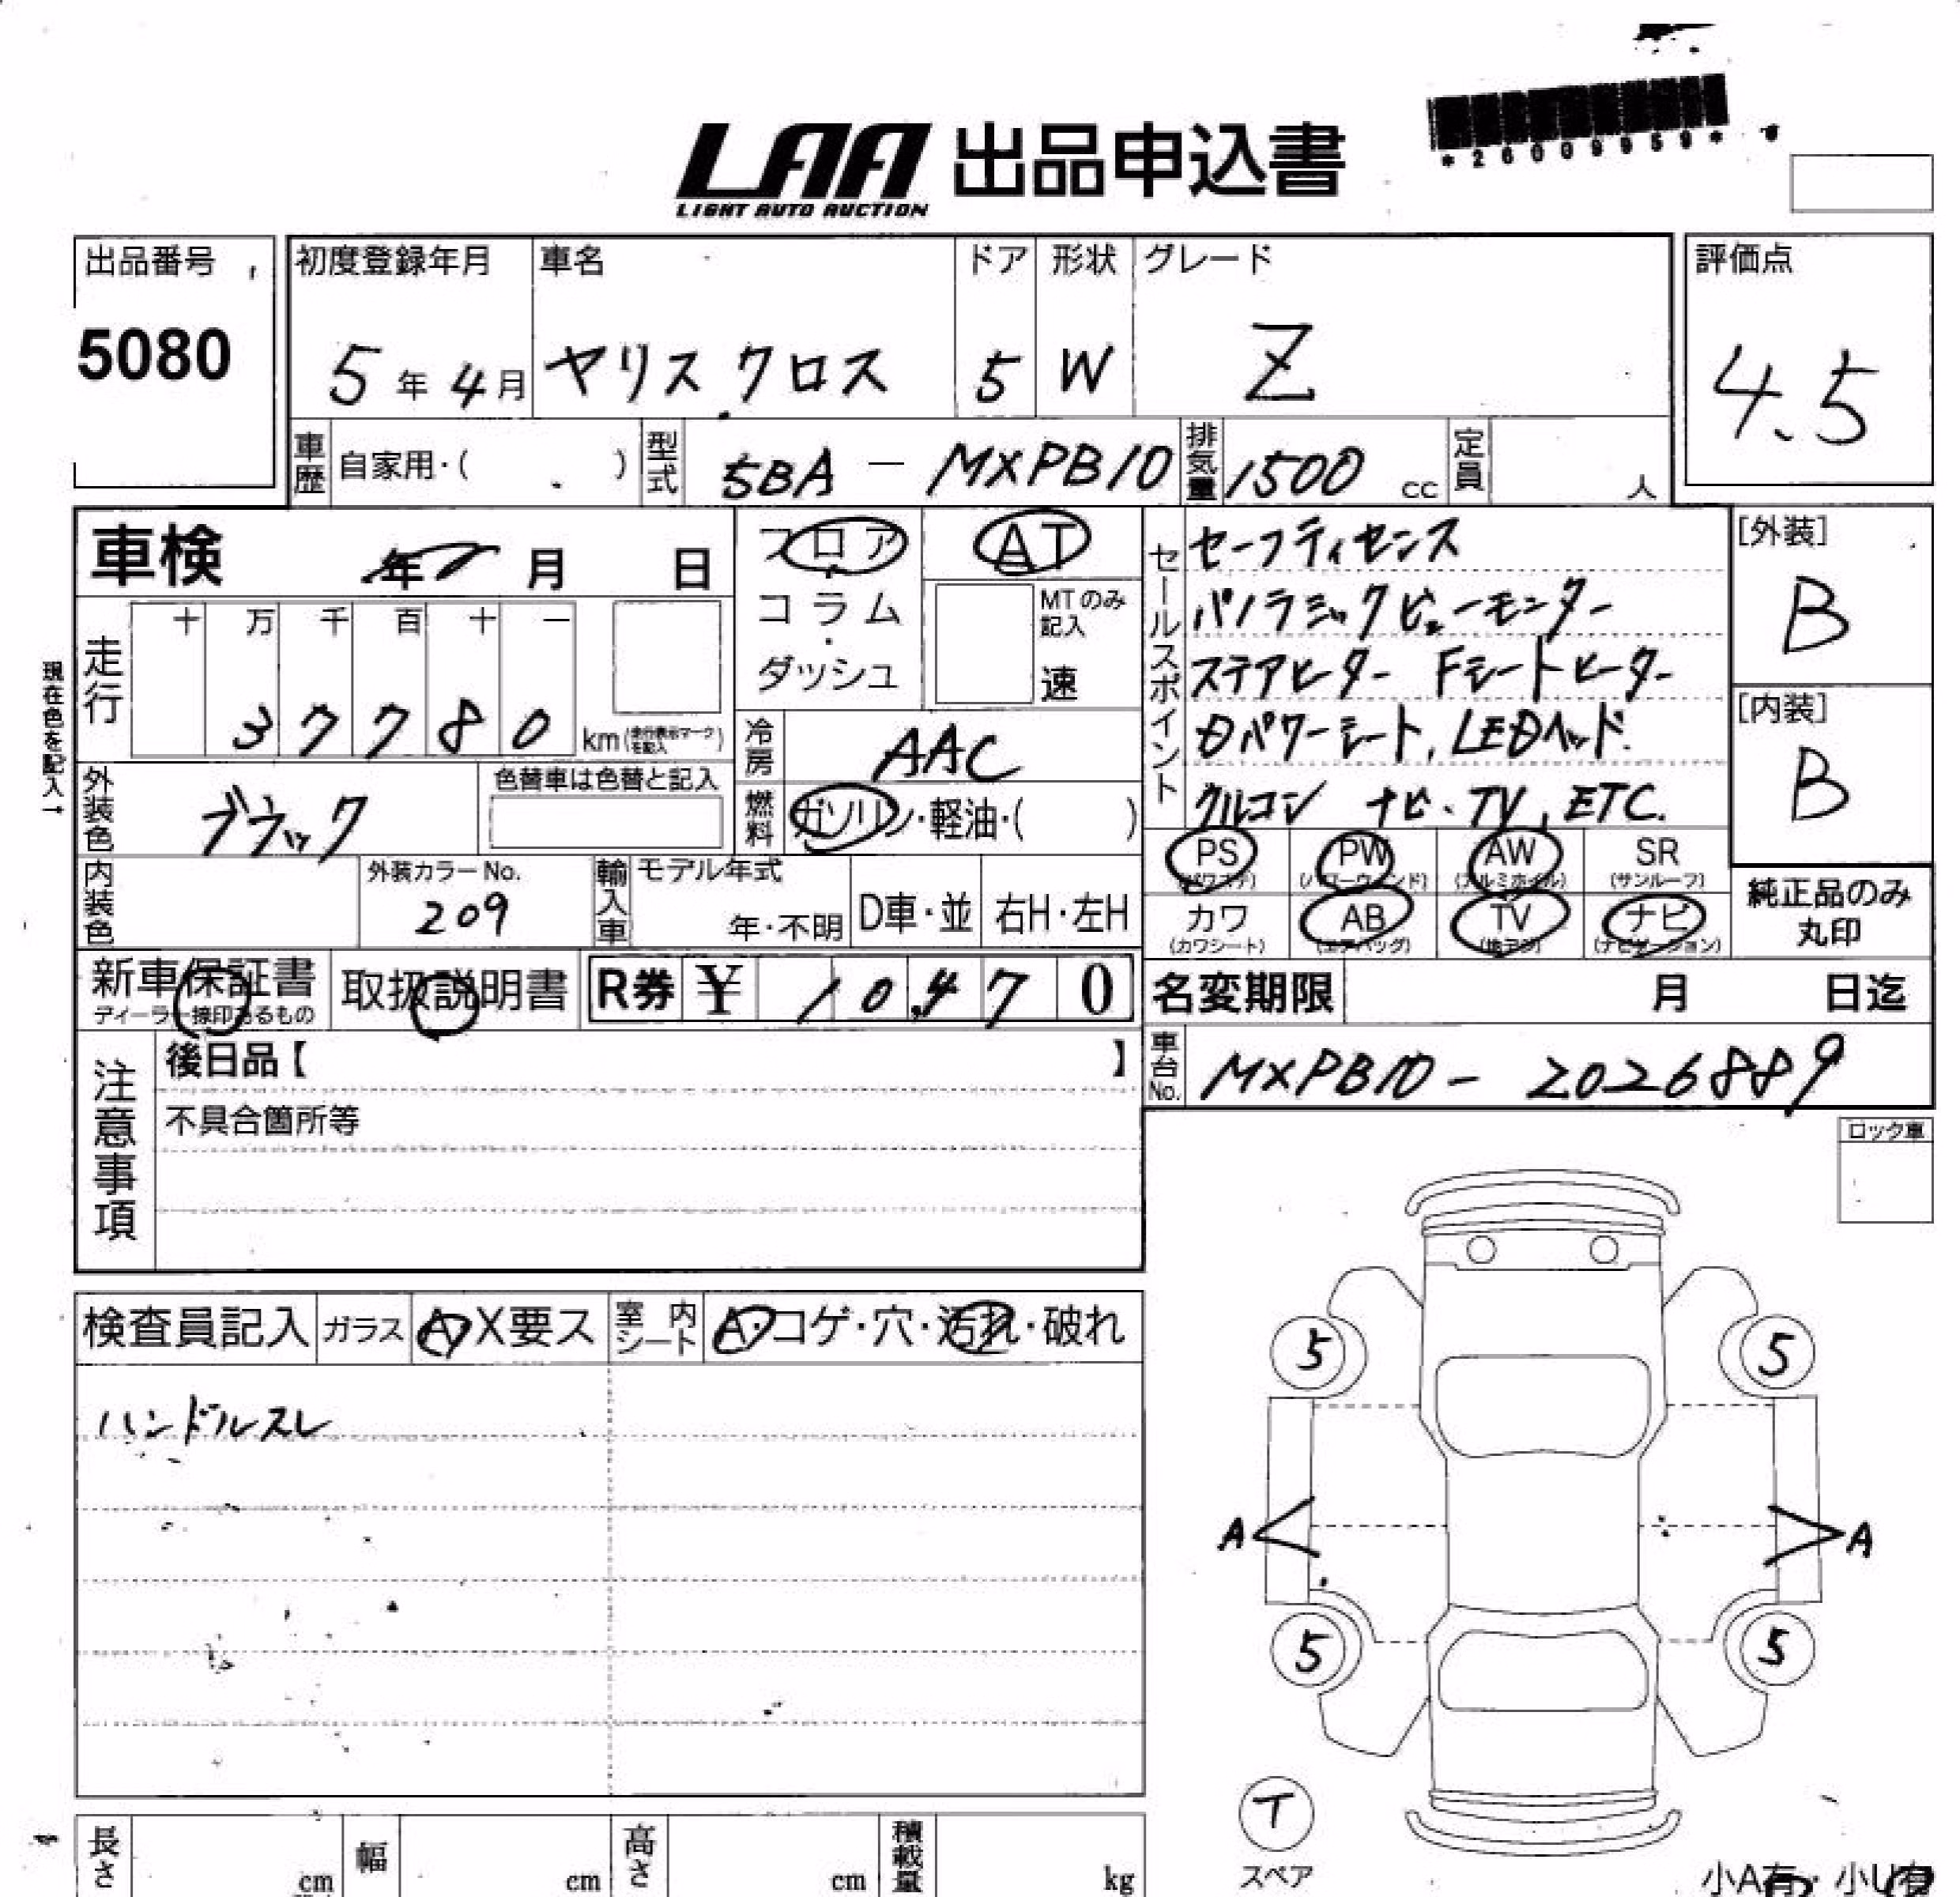 *26009959*
LAA 出品申込書
LIGHT AUTO AUCTION
出品番号
5080
初度登録年月
5年4月
車名
ヤリス クロス
ドア
5
形状
W
グレード
Z
評価点
4.5
車歴
自家用・( )
型式
5BA - MXPB10
排気量
1500 cc
定員
人
車検 年 月 日
フロア
・
コラム
・
ダッシュ
AT
MTのみ
記入
速
走行
十 万 千 百 十 一
3 7 7 8 0 km (走行表示マークを記入)
現在色を記入→
冷房
AAC
燃料
ガソリン・軽油・( )
外装色
ブラック
色替車は色替と記入
内装色
外装カラーNo.
209
輸入車
モデル年式
年・不明
D車・並
右H・左H
セールスポイント
セーフティセンス
パノラミックビューモニター
ステアヒーター Fシートヒーター
Dパワーシート, LEDヘッド.
クルコン ナビ・TV, ETC.
[外装]
B
[内装]
B
PS
(パワステ)
PW
(パワーウィンド)
AW
(アルミホイル)
SR
(サンルーフ)
カワ
(カワシート)
AB
(エアバッグ)
TV
(地デジ)
ナビ
(ナビゲーション)
純正品のみ
丸印
新車保証書
ディーラー捺印あるもの
取扱説明書
R券 ¥ 10,470
名変期限 月 日迄
車台No.
MXPB10 - 2026889
注意事項
後日品【 】
不具合箇所等
ロック車
検査員記入
ガラス
A・X要ス
室内シート
A・コゲ・穴・汚れ・破れ
ハンドルスレ
5
5
A
A
5
5
T
スペア
長さ cm
幅 cm
高さ cm
積載量 kg
小A有・小U有